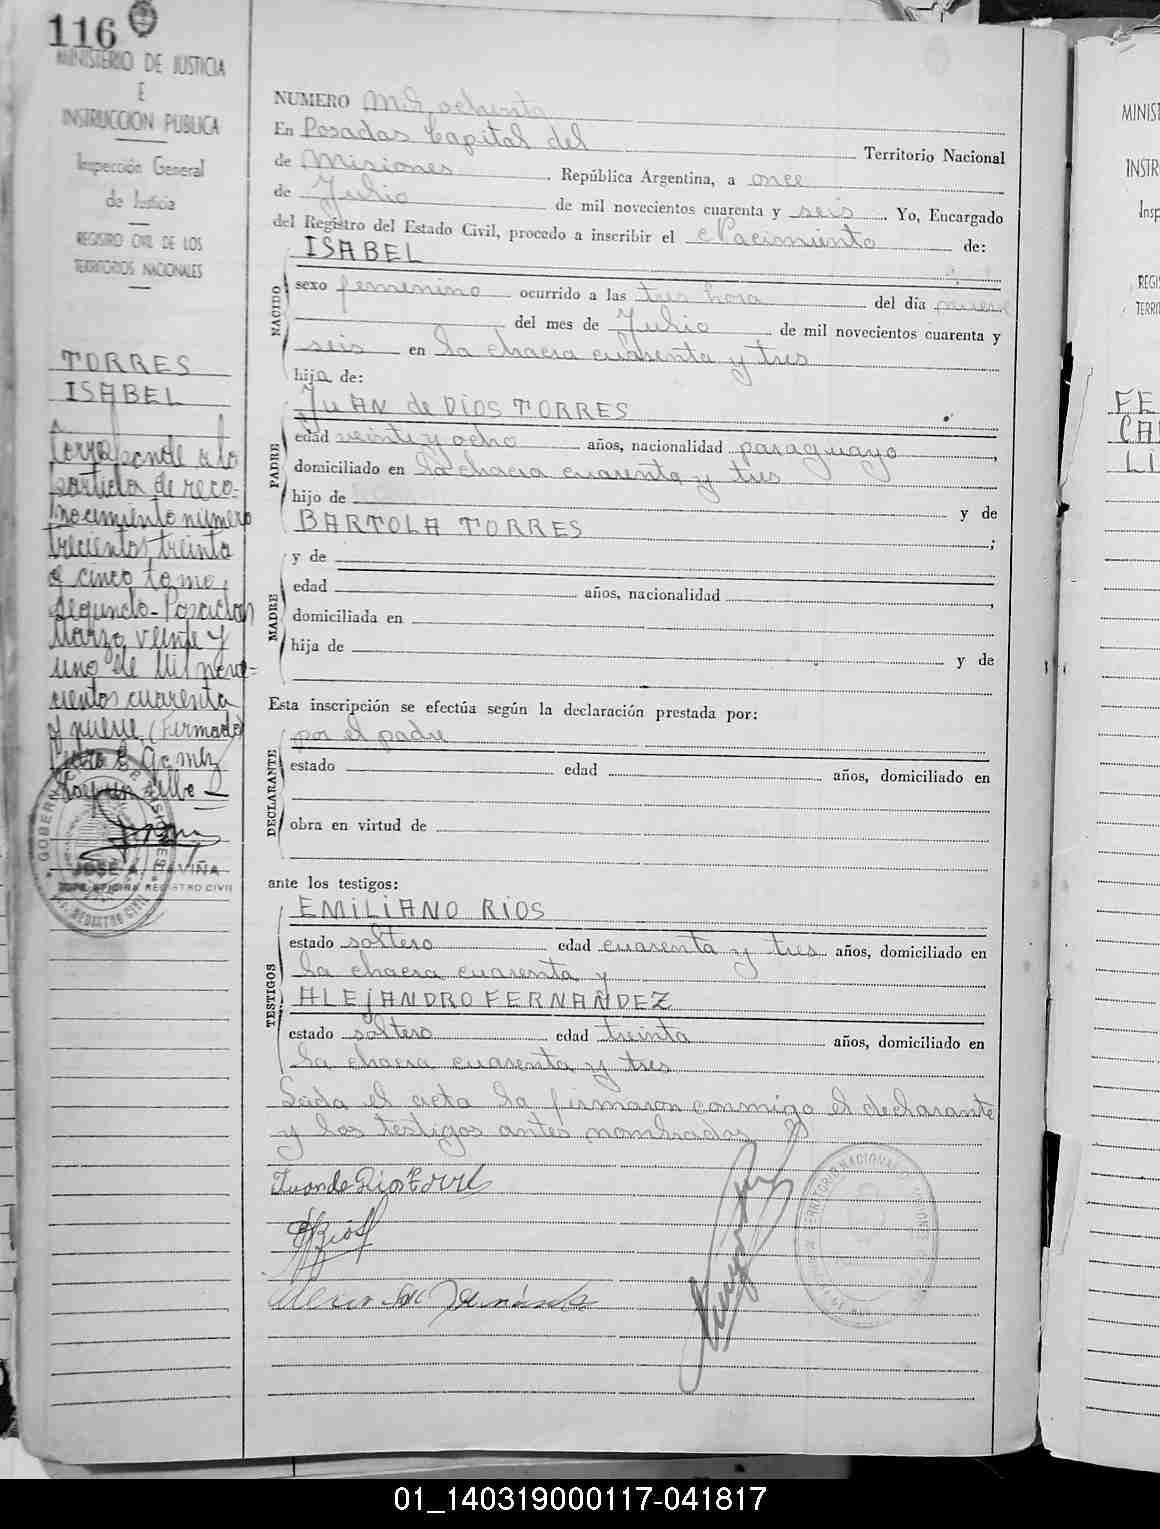 116
MINISTERIO DE JUSTICIA
E
INSTRUCCION PUBLICA
Inspección General
de Justicia
REGISTRO CIVIL DE LOS
TERRITORIOS NACIONALES
TORRES
ISABEL
Corresponde a la
partida de reco-
nocimiento número
trecientos treinta
y cinco tomo
segundo-Posadas
Marzo veinte y
uno de Mil nove-
cientos cuarenta
y nueve (Firmado)
JOSE A. GAVIÑA
REGISTRO CIVIL
NUMERO Mil ochenta
En Posadas Capital del Territorio Nacional
de Misiones República Argentina, a once
de Julio de mil novecientos cuarenta y seis. Yo, Encargado
del Registro del Estado Civil, procedo a inscribir el Nacimiento de:
ISABEL
NACIDO
sexo femenino ocurrido a las tres hora del día nueve
del mes de Julio de mil novecientos cuarenta y
seis en la chacra cuarenta y tres
hija de:
JUAN de DIOS TORRES
PADRE
edad veinte y ocho años, nacionalidad paraguayo,
domiciliado en la chacra cuarenta y tres
hijo de y de
BARTOLA TORRES ;
y de
MADRE
edad años, nacionalidad ,
domiciliada en
hija de y de
Esta inscripción se efectúa según la declaración prestada por:
por el padre
DECLARANTE
estado edad años, domiciliado en
obra en virtud de
ante los testigos:
EMILIANO RIOS
TESTIGOS
estado soltero edad cuarenta y tres años, domiciliado en
la chacra cuarenta y
ALEJANDRO FERNANDEZ
estado soltero edad treinta años, domiciliado en
la chacra cuarenta y tres
Leida el acta la firmaron conmigo el declarante
y los testigos antes nombrados
Juan de Dios Torres
MINIST
INSTR
Insp
REGIS
TERRI
FE
CA
LI
01_140319000117-041817